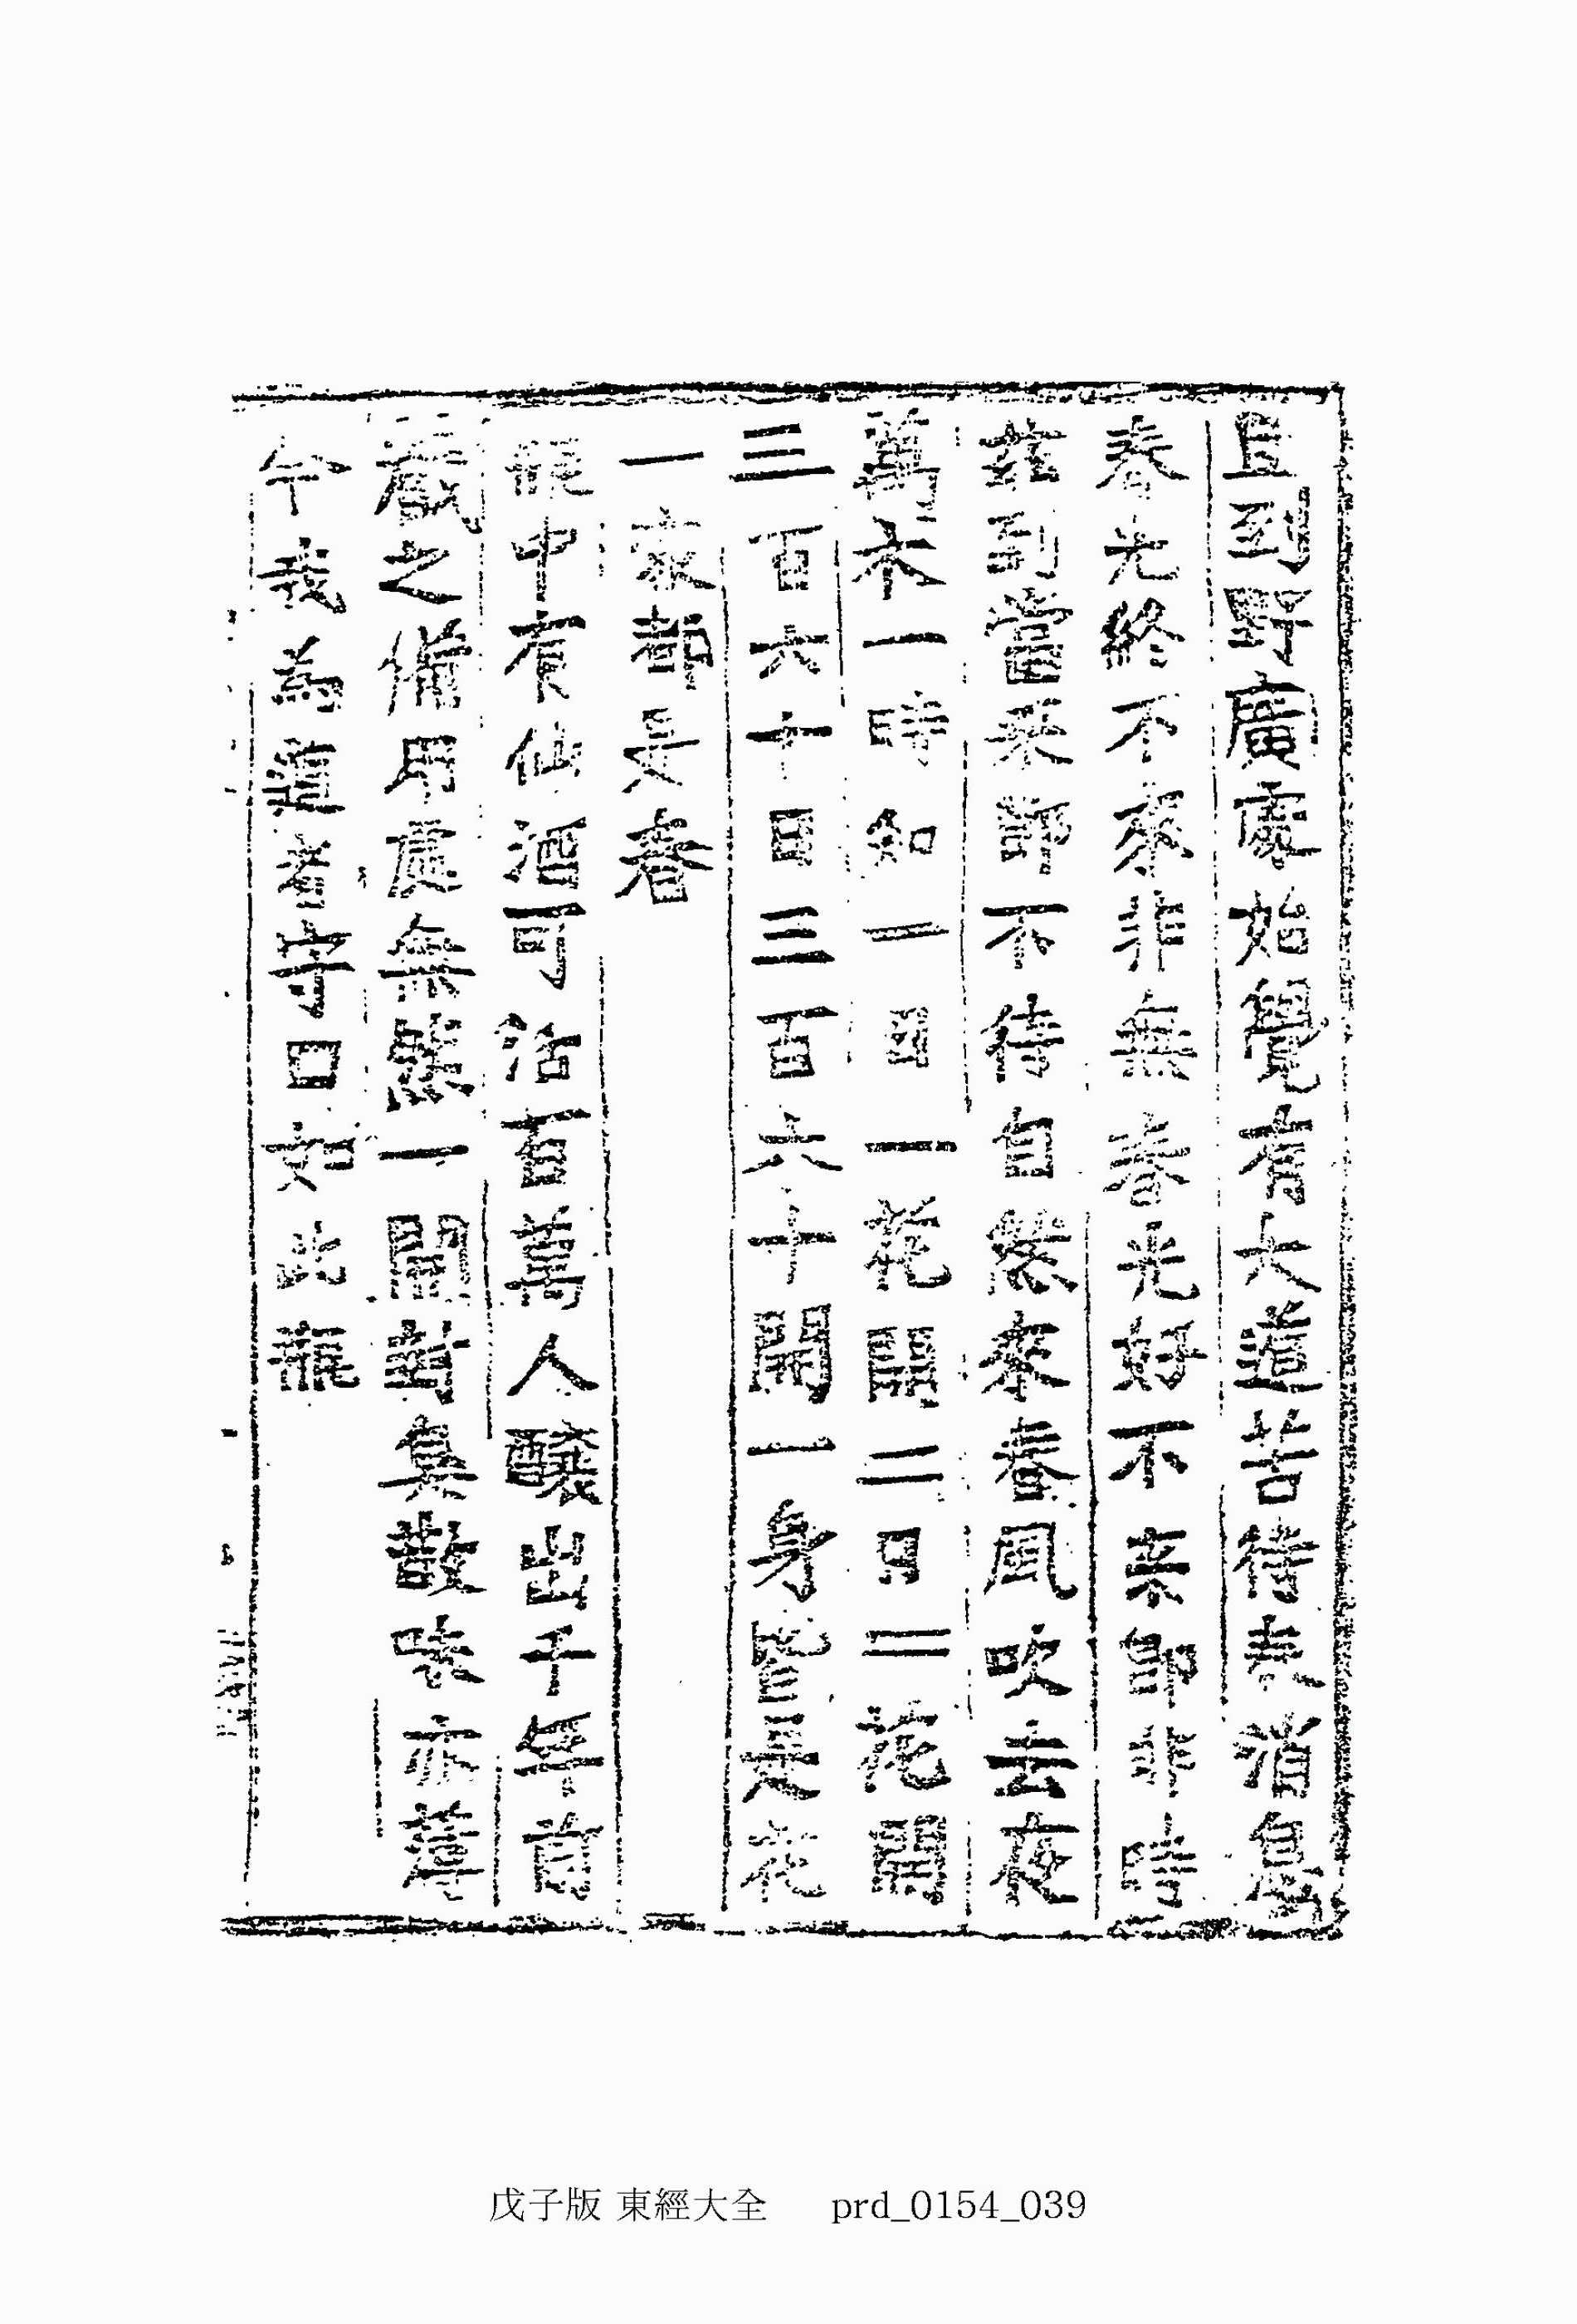 且到野廣處始覺有大道苦待春消息
春光終不來非無春光好不來卽非時
玆到當來節不待自然來春風吹去夜
萬木一時知一日一花開二日二花開
三百六十日三百六十開一身皆是花
一家都是春
甁中有仙酒可活百萬人釀出千年前
藏之備用處無然一開封臭散味亦薄
今我爲道者守口如此甁
戊子版 東經大全 prd_0154_039